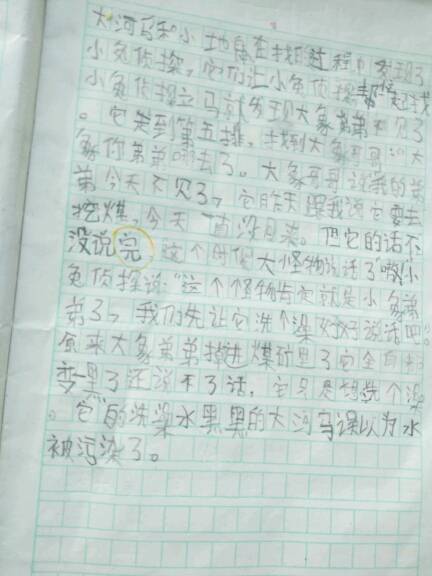 大河马和小地鼠在找的过程中发现了
小兔侦探，它们让小兔侦探帮忙找
小兔侦探立马就发现大象弟弟不见了
。它先到第五排，找到大象哥哥：“大
象你弟弟哪去了。大象哥哥说我的弟
弟今天不见了，它昨天跟我说它要去
挖煤，今天一直没回来。它的话不
没说完，这个时候大怪物说话了“嗷”小
兔侦探说：“这个怪物肯定就是小象弟
弟了，我们先让它洗个澡好好说话吧。
原来大象弟弟掉进煤矿里了它全身
变黑了还说不了话，它只是想洗个澡
。它的洗澡水黑黑的大河马误以为水
被污染了。